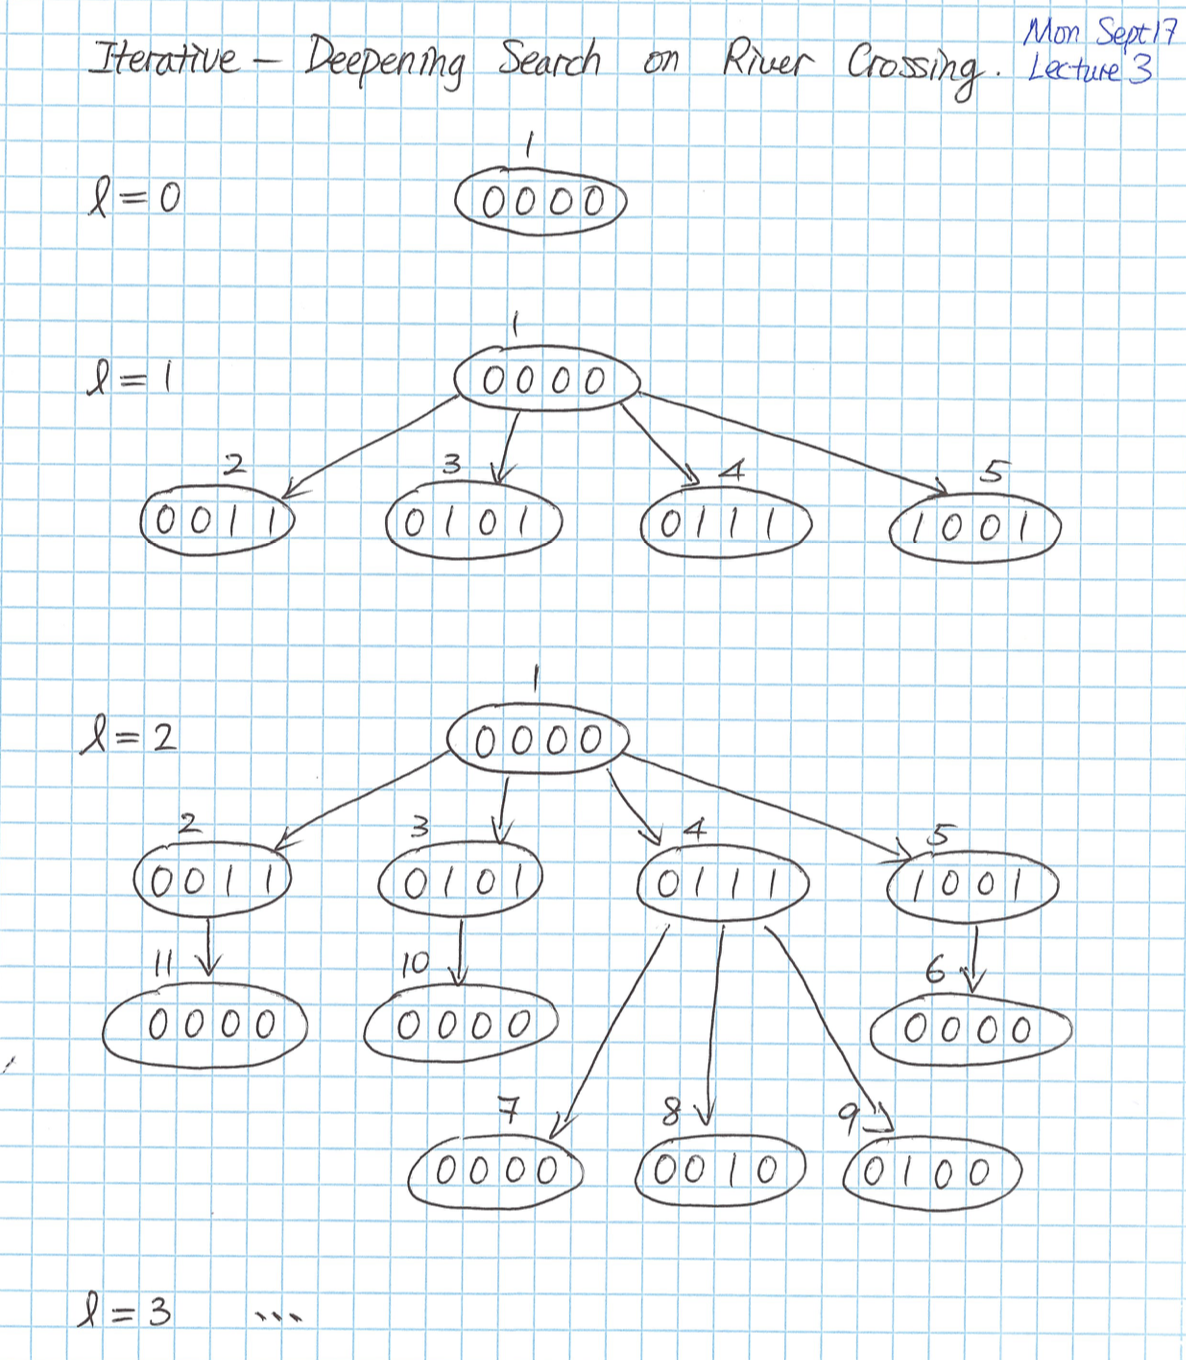 Iterative - Deepening Search on River Crossing.
Mon Sept 17
Lecture 3
1
l = 0
0 0 0 0
1
l = 1
0 0 0 0
2 3 4 5
0 0 1 1 0 1 0 1 0 1 1 1 1 0 0 1
1
l = 2
0 0 0 0
2 3 4 5
0 0 1 1 0 1 0 1 0 1 1 1 1 0 0 1
11 10 6
0 0 0 0 0 0 0 0 0 0 0 0
7 8 9
0 0 0 0 0 0 1 0 0 1 0 0
l = 3 ...